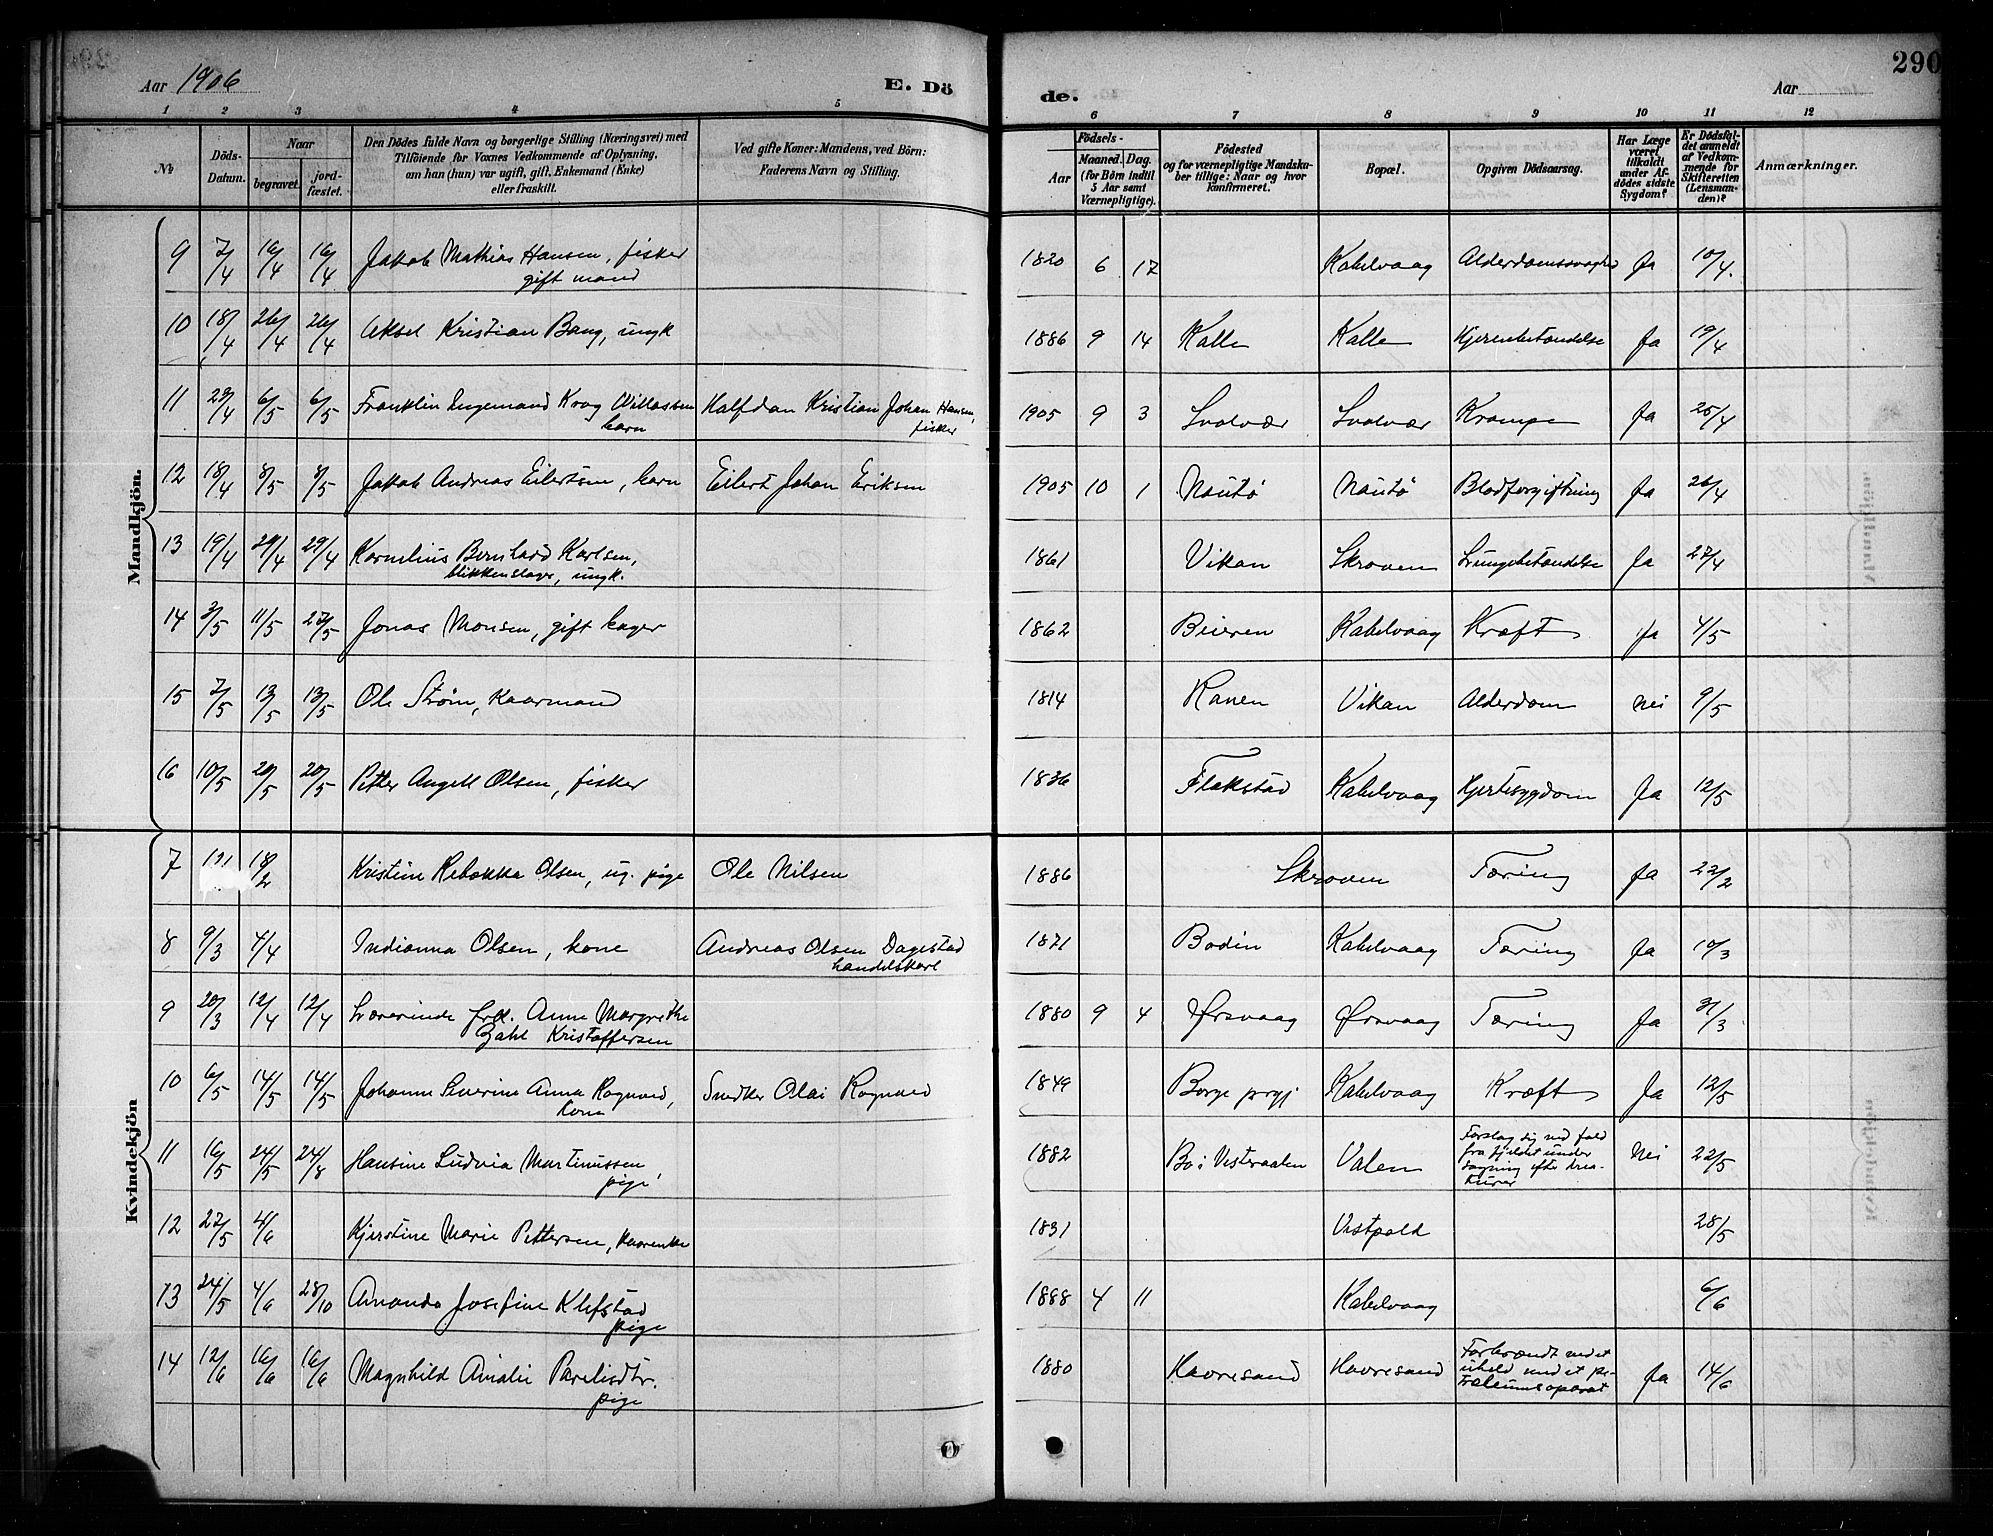 290
Aar 1906
E. Dö
de.
Aar
1 2 3 4 5 6 7 8 9 10 11 12
№
Döds-Datum.
Naar
begravet.
jord-fæstet.
Den Dödes fulde Navn og borgerlige Stilling (Næringsvei) med
Tilföiende for Voxnes Vedkommende af Oplysning,
om han (hun) var ugift, gift, Enkemand (Enke)
eller fraskilt.
Ved gifte Koner: Mandens, ved Börn:
Faderens Navn og Stilling.
Födsels-
Aar
Maaned. Dag.
(for Börn indtil
5 Aar samt
Værnepligtige).
Födested
og for værnepligtige Mandska-
ber tillige: Naar og hvor
konfirmeret.
Bopæl.
Opgiven Dödsaarsag.
Har Læge
været
tilkaldt
under Af-
dödes sidste
Sygdom?
Er Dödsfal-
det anmeldt
af Vedkom-
mende for
Skifteretten
(Lensman-
den)?
Anmærkninger.
Mandkjön.
9 7/4 16/4 16/4 Jakob Mathias Hansen, fisker 1820 6 17 Kabelvaag Alderdomssvaghed Ja 10/4.
gift mand
10 18/4 26/4 26/4 Aksel Kristian Bang, ungk 1886 9 14 Kalle Kalle Hjernebetændelse Ja 19/4
11 23/4 6/5 6/5 Franklin Ingemand Krog Willassen Halfdan Kristian Johan Hansen, 1905 9 3 Svolvær Svolvær Krampe Ja 25/4
barn fisker
12 18/4 8/5 8/5 Jakob Andreas Eilertsen, barn Eilert Johan Eriksen 1905 10 1 Nautø Nautø Blodforgiftning Ja 26/4
13 19/4 29/4 29/4 Kornelius Bernhard Karlsen, 1861 Vikan Skroven Lungebetændelse Ja 27/4
blikkenslager, ungk.
14 3/5 11/5 27/5 Jonas Monsen, gift bager 1862 Beieren Kabelvaag Kræft Ja 4/5
15 7/5 13/5 13/5 Ole Strøm, kaarmand 1814 Ranen Vikan Alderdom Nei 9/5
16 10/5 20/5 20/5 Petter Angell Olsen, fisker 1836 Flakstad Kabelvaag Hjertesygdom Ja 12/5
Kvindekjön
7 18/2 Kristine Rebekka Olsen, ug. pige Ole Nilsen 1886 Skroven Tæring Ja 22/2
8 9/3 4/4 Indianna Olsen, kone Andreas Olsen Dagestad 1871 Bodin Kabelvaag Tæring Ja 10/3
handelskarl
9 20/3 12/4 12/4 Lærerinde frk. Anne Margrethe 1880 9 4 Ørsvaag Ørsvaag Tæring Ja 31/3
Zahl Kristoffersen
10 6/5 14/5 14/5 Johanne Severine Anna Rognved, Snedker Olai Rognved 1849 Borge prgj Kabelvaag Kræft Ja 12/5
kone
11 16/5 24/5 24/8 Hansine Ludvia Martinussen 1882 Bø i Vesteraalen Valen Nei 22/5
pige
Forslog sig ved fald
fra fjeldet under
søgning efter krea-
turer
12 27/5 4/6 Kjerstine Marie Pettersen, kaarenke 1831 Vestpold 28/5
13 24/5 4/6 28/10 Amanda Josefine Klefstad 1888 4 11 Kabelvaag 6/6
pige
14 12/6 16/6 16/6 Magnhild Amalie Parelisdtr. 1880 Havresand Havresand Ja 14/6
pige
Forbrændt ved et
uheld med et pe-
troleumsoparat